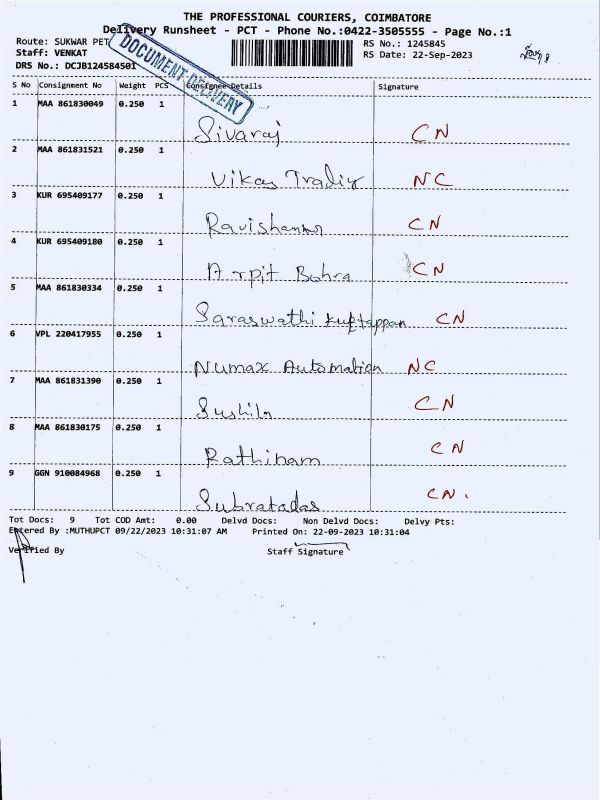 THE PROFESSIONAL COURIERS, COIMBATORE
Delivery Runsheet - PCT - Phone No.:0422-3505555 - Page No.:1
Route: SUKWAR PET RS No.: 1245845
Staff: VENKAT RS Date: 22-Sep-2023
DRS No.: DCJB124584501
DOCUMENT DELIVERY
S No Consignment No Weight PCS Consignee Details Signature
1 MAA 861830049 0.250 1
Sivaraj CN
2 MAA 861831521 0.250 1
Vikas NC
3 KUR 695409177 0.250 1
Ravishankar CN
4 KUR 695409180 0.250 1
Arpit Bohra CN
5 MAA 861830334 0.250 1
Saraswathi Kuppappan CN
6 VPL 220417955 0.250 1
Numax Automation NC
7 MAA 861831390 0.250 1
Sushila CN
8 MAA 861830175 0.250 1
Rathinam CN
9 GGN 910084968 0.250 1
Subratadas CN.
Tot Docs: 9 Tot COD Amt: 0.00 Delvd Docs: Non Delvd Docs: Delvy Pts:
Entered By :MUTHUPCT 09/22/2023 10:31:07 AM Printed On: 22-09-2023 10:31:04
Verified By Staff Signature